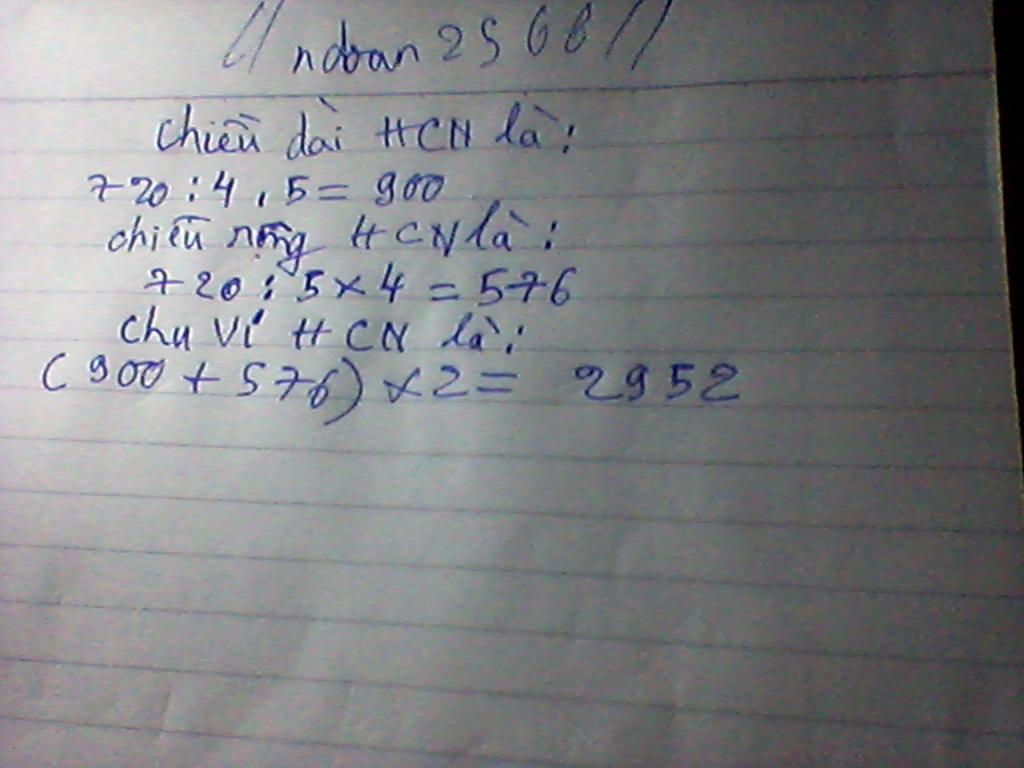 // ndoan 2566 //
chiều dài HCN là:
720 : 4 . 5 = 900
chiều rộng HCN là:
720 : 5 × 4 = 576
Chu Vi HCN là:
(900 + 576) × 2 = 2952